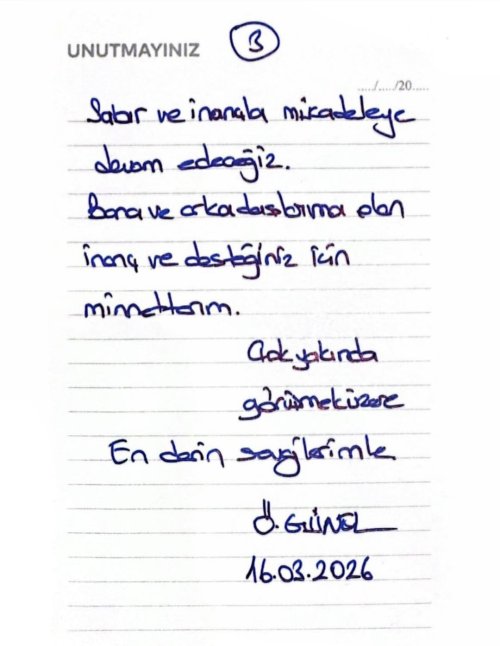 UNUTMAYINIZ 3
..../..../20.....
Sabır ve inançla mücadeleye
devam edeceğiz.
Bana ve arkadaşlarıma olan
inanç ve desteğiniz için
minnettarım.
Çok yakında
görüşmek üzere
En derin sevgilerimle
Ö. GÜNEL
16.03.2026